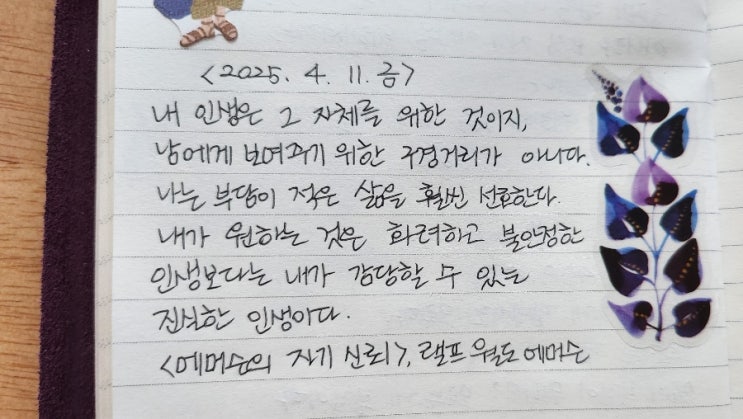 <2025. 4. 11. 금>
내 인생은 그 자체를 위한 것이지,
남에게 보여주기 위한 구경거리가 아니다.
나는 부담이 적은 삶을 훨씬 선호한다.
내가 원하는 것은 화려하고 불안정한
인생보다는 내가 감당할 수 있는
진실한 인생이다.
<에머슨의 자기 신뢰>, 랠프 월도 에머슨